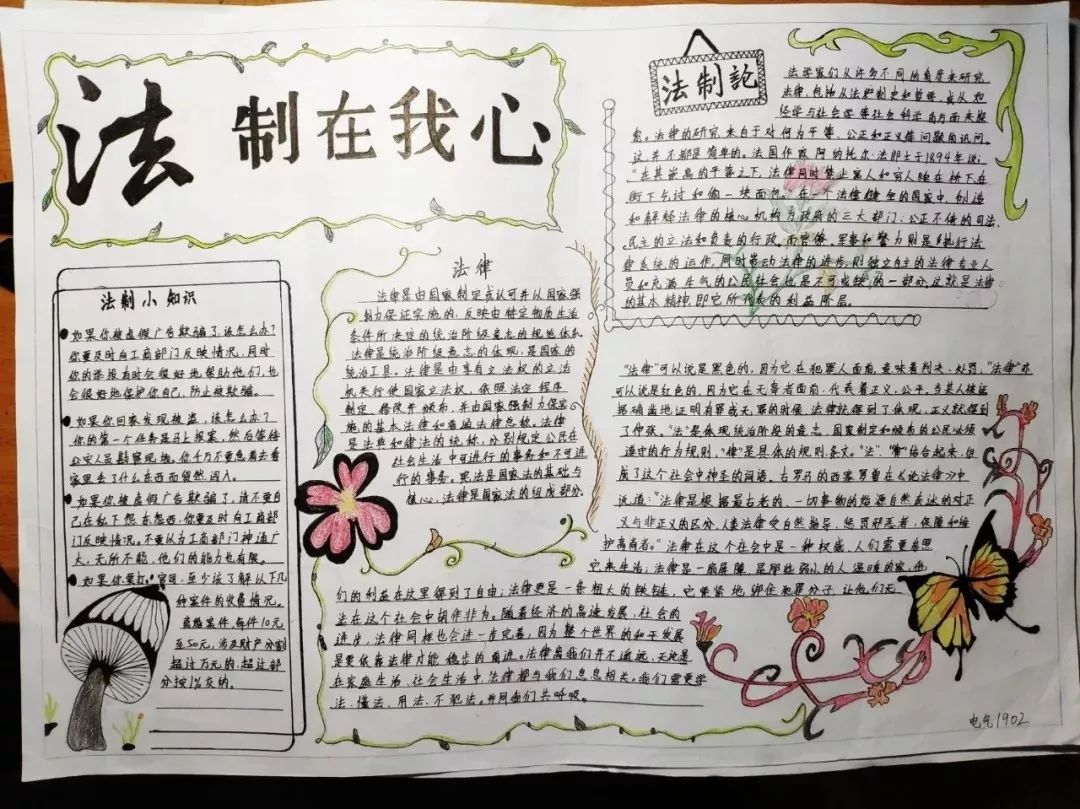 法制在我心
法制小知识
如果你被虚假广告欺骗了,该怎么办?
你要及时向工商部门反映情况,同时
你的举报有时会很好地帮助他们,也
会很好地保护你自己,防止被欺骗。
如果你回家发现被盗,该怎么办?
你的第一个任务是马上报案,然后等待
公安人员勘察现场。你千万不要急着去看
家里丢了什么东西而贸然闯入。
如果你被虚假广告欺骗了,请不要自
己在私下怨东怨西,你要及时向工商部
门反映情况,不要认为工商部门神通广
大,无所不能,他们的能力也有限。
如果你要打官司,至少该了解以下几
种案件的收费情况。
离婚案件,每件10元
至50元,涉及财产分割
超过万元的,超过部
分按1%交纳。
法律
法律是由国家制定或认可并以国家强
制力保证实施的,反映由特定物质生活
条件所决定的统治阶级意志的规范体系。
法律是统治阶级意志的体现,是国家的
统治工具。法律是由享有立法权的立法
机关行使国家立法权,依照法定程序
制定、修改并颁布,并由国家强制力保证实
施的基本法律和普通法律总称。法律
是法典和律法的统称,分别规定公民在
社会生活中可进行的事务和不可进
行的事务。宪法是国家法的基础与
核心,法律是国家法的组成部分。
法制论
法学家们从许多不同的角度来研究
法律,包括从法制史和哲学,或从如
经学与社会学等社会科学的方面来探
索。法律的研究来自于对何为平等、公正和正义等问题的讯问。
这并不都是简单的。法国作家阿纳托尔·法郎士于1894年说:
“在其崇高的平等之下,法律同时禁止富人和穷人睡在桥下在
街下乞讨和偷一块面包。”在一个法律健全的国家中,创造
和解释法律的核心机构为政府的三大部门:公正不倚的司法、
民主的立法和负责的行政。而官僚、军事和警力则是执行法
律系统的运作,同时带动法律的进步,则独立自主的法律专业人
员和充满生气的公民社会也是不可或缺的一部分,这就是法律
的基本精神,即它所代表的利益阶层。
“法律”可以说是黑色的,因为它在犯罪人面前,意味着判决、处罚,“法律”亦
可以说是红色的,因为它在无辜者面前,代表着正义,公平。当某人被证
据确凿地证明有罪或无罪的时候,法律就得到了体现,正义就得到
了伸张。“法”是体现统治阶段的意志,国家制定和颁布的公民必须
遵守的行为规则,“律”是具体的规则条文。“法”、“律”结合起来,组
成了这个社会中神圣的词语。古罗马的西塞罗曾在《论法律》中
说道:“法律是根据最古老的、一切事物的始源自然表述的对正
义与非正义的区分,人类法律受自然指导,惩罚邪恶者,保障和维
护高尚者。”法律在这个社会中是一种权威,人们需要自思
它来生活,法律是一扇屏障,是那些弱小的人温暖的家,他
们的利益在这里得到了自由;法律更是一条粗大的铁链,它紧紧地绑住犯罪分子,让他们无
法在这个社会中胡作非为。随着经济的高速发展,社会的
进步,法律同样也会进一步完善,因为整个世界的和平发展
是要依靠法律才能稳步的前进。法律离我们并不遥远,无论是
在家庭生活、社会生活中,法律都与我们息息相关。我们需要学
法、懂法、用法、不犯法。并同我们共呼吸。
电气1902